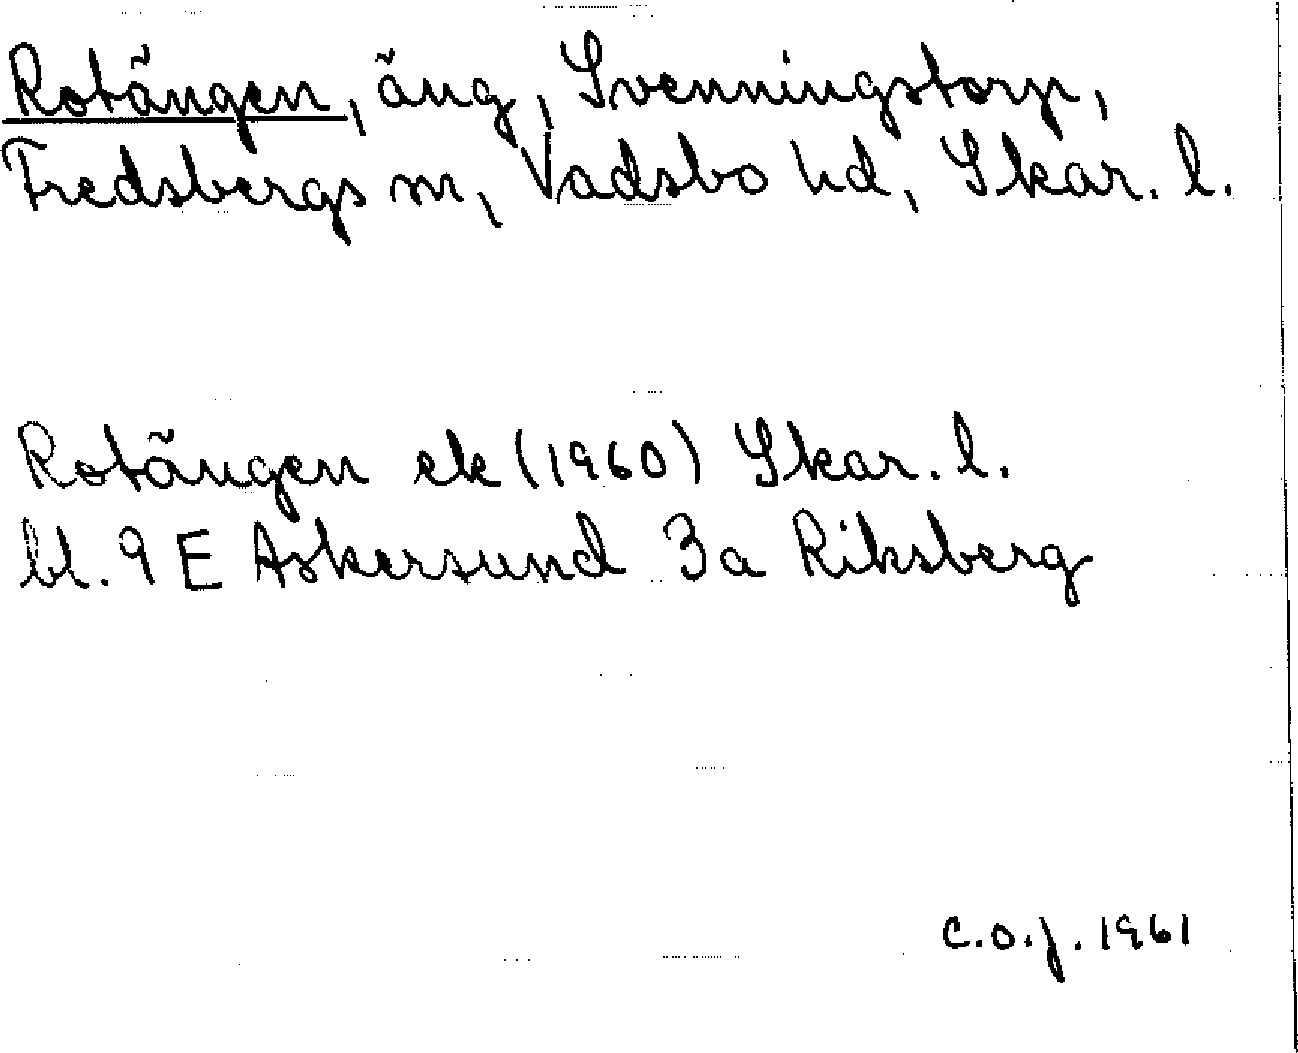 Rotängen, äng, Svenningstorp,
Fredsbergs sn, Vadsbo hd, Skar. l.
Rotängen ek (1960) Skar. l.
bl. 9 E Askersund 3a Riksberg
C.O.J. 1961